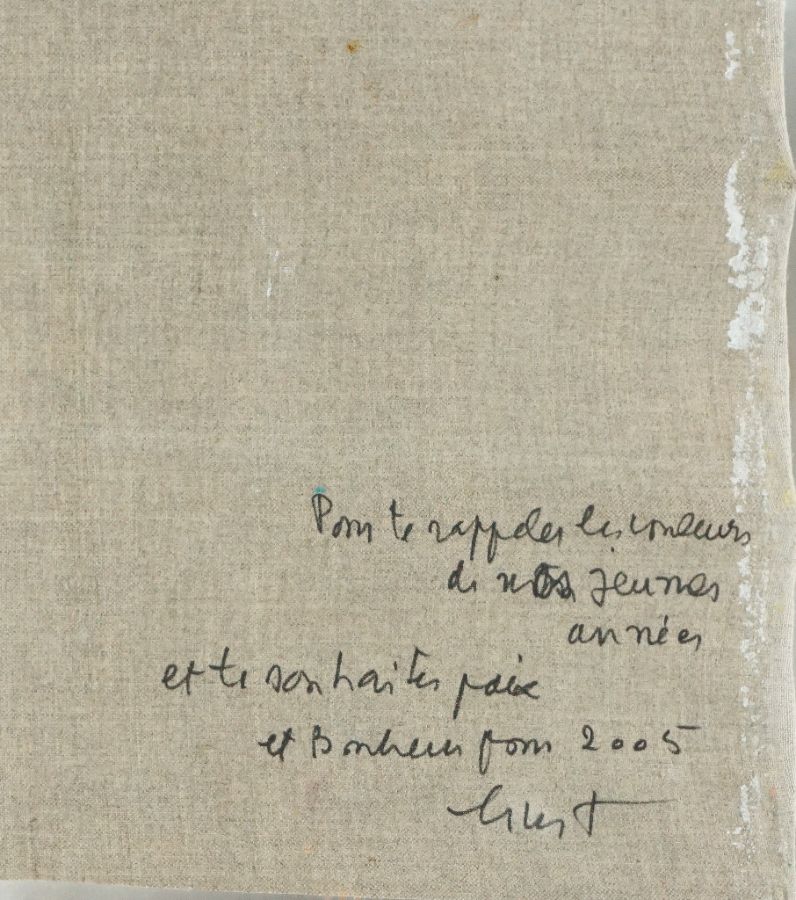 Pour te rappeler les couleurs
de nos jeunes
années
et te souhaiter paix
et Bonheur pour 2005